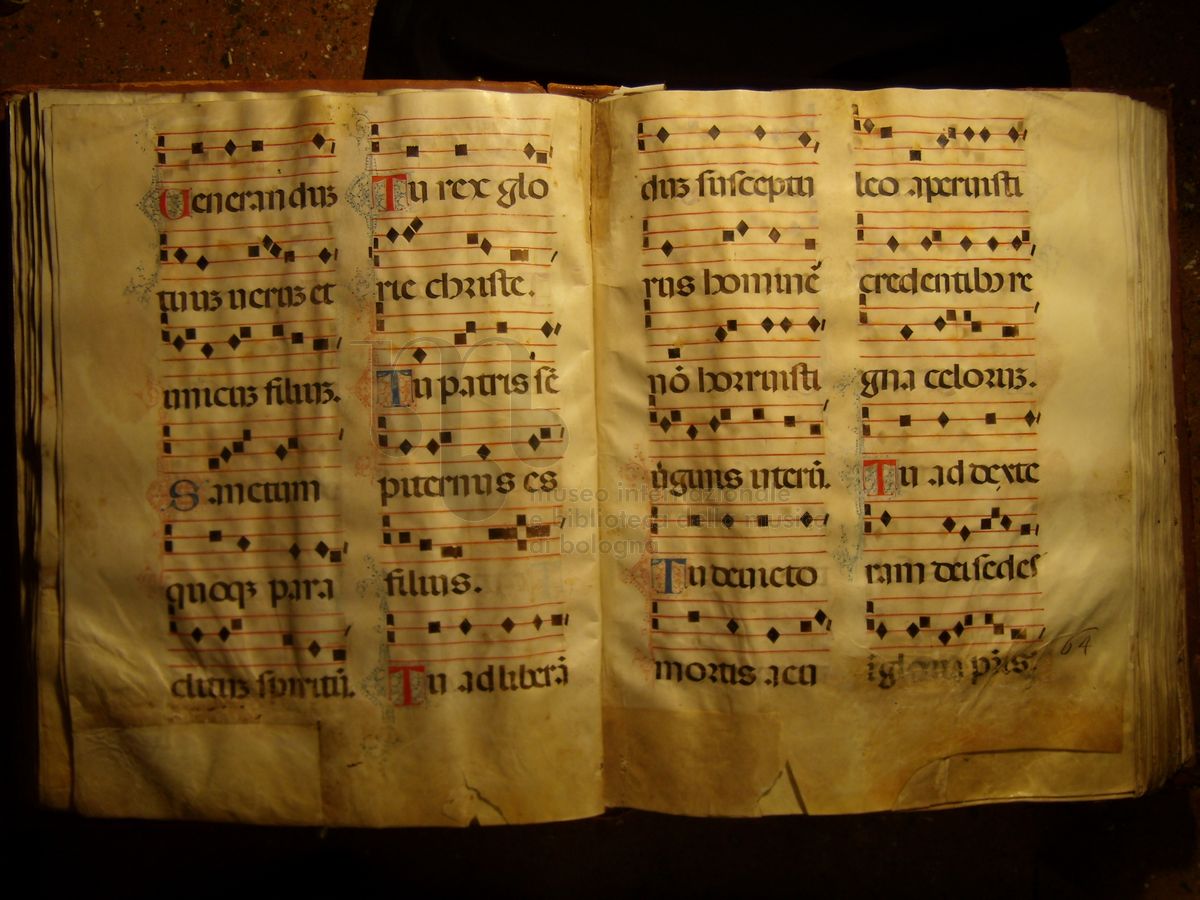 Ueneranduȝ
tuuȝ ueruȝ et
unicuȝ filiuȝ.
Sanctum
quoqȝ para
clituȝ spiritū.
Tu rex glo
rie christe.
Tu patris sē
piternus es
filius.
Tu ad liberā
duȝ susceptu
rus hominē
nō horruisti
u̇ginis uterū.
Tu deuicto
mortis acu
leo aperuisti
credentibȝ re
gna celoruȝ.
Tu ad dexte
ram dei sedes
ī gloria pr̄is.
64
museo internazionale
e biblioteca della musica
di bologna